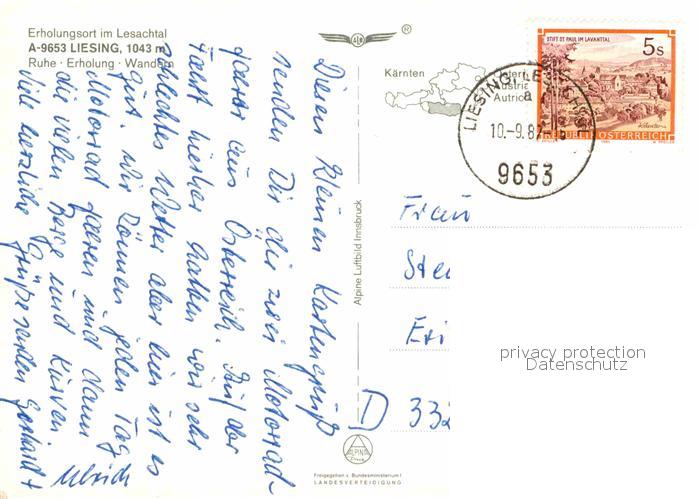 Erholungsort im Lesachtal
A-9653 LIESING, 1043 m
Ruhe · Erholung · Wandern
®
Kärnten
Austria
STIFT ST. PAUL IM LAVANTTAL
5 s
REPUBLIK ÖSTERREICH
LIESING, LESACHTAL
a
10.-9.87
9653
Diesen kleinen Kartengruß
senden Dir die zwei Motorrad-
fahrer aus Österreich. Auf der
Fahrt hierher hatten wir sehr
schlechtes Wetter aber hier ist es
gut. Wir können jeden Tag
Motorrad fahren und dann
die vielen Berge und Kurven
Viele herzliche Grüße senden Gerhard +
Ulrich
Alpine Luftbild Innsbruck
Frau
Ste
Eri
D 332
privacy protection
Datenschutz
ALPINE
Freigegeben v. Bundesministerium f.
LANDESVERTEIDIGUNG